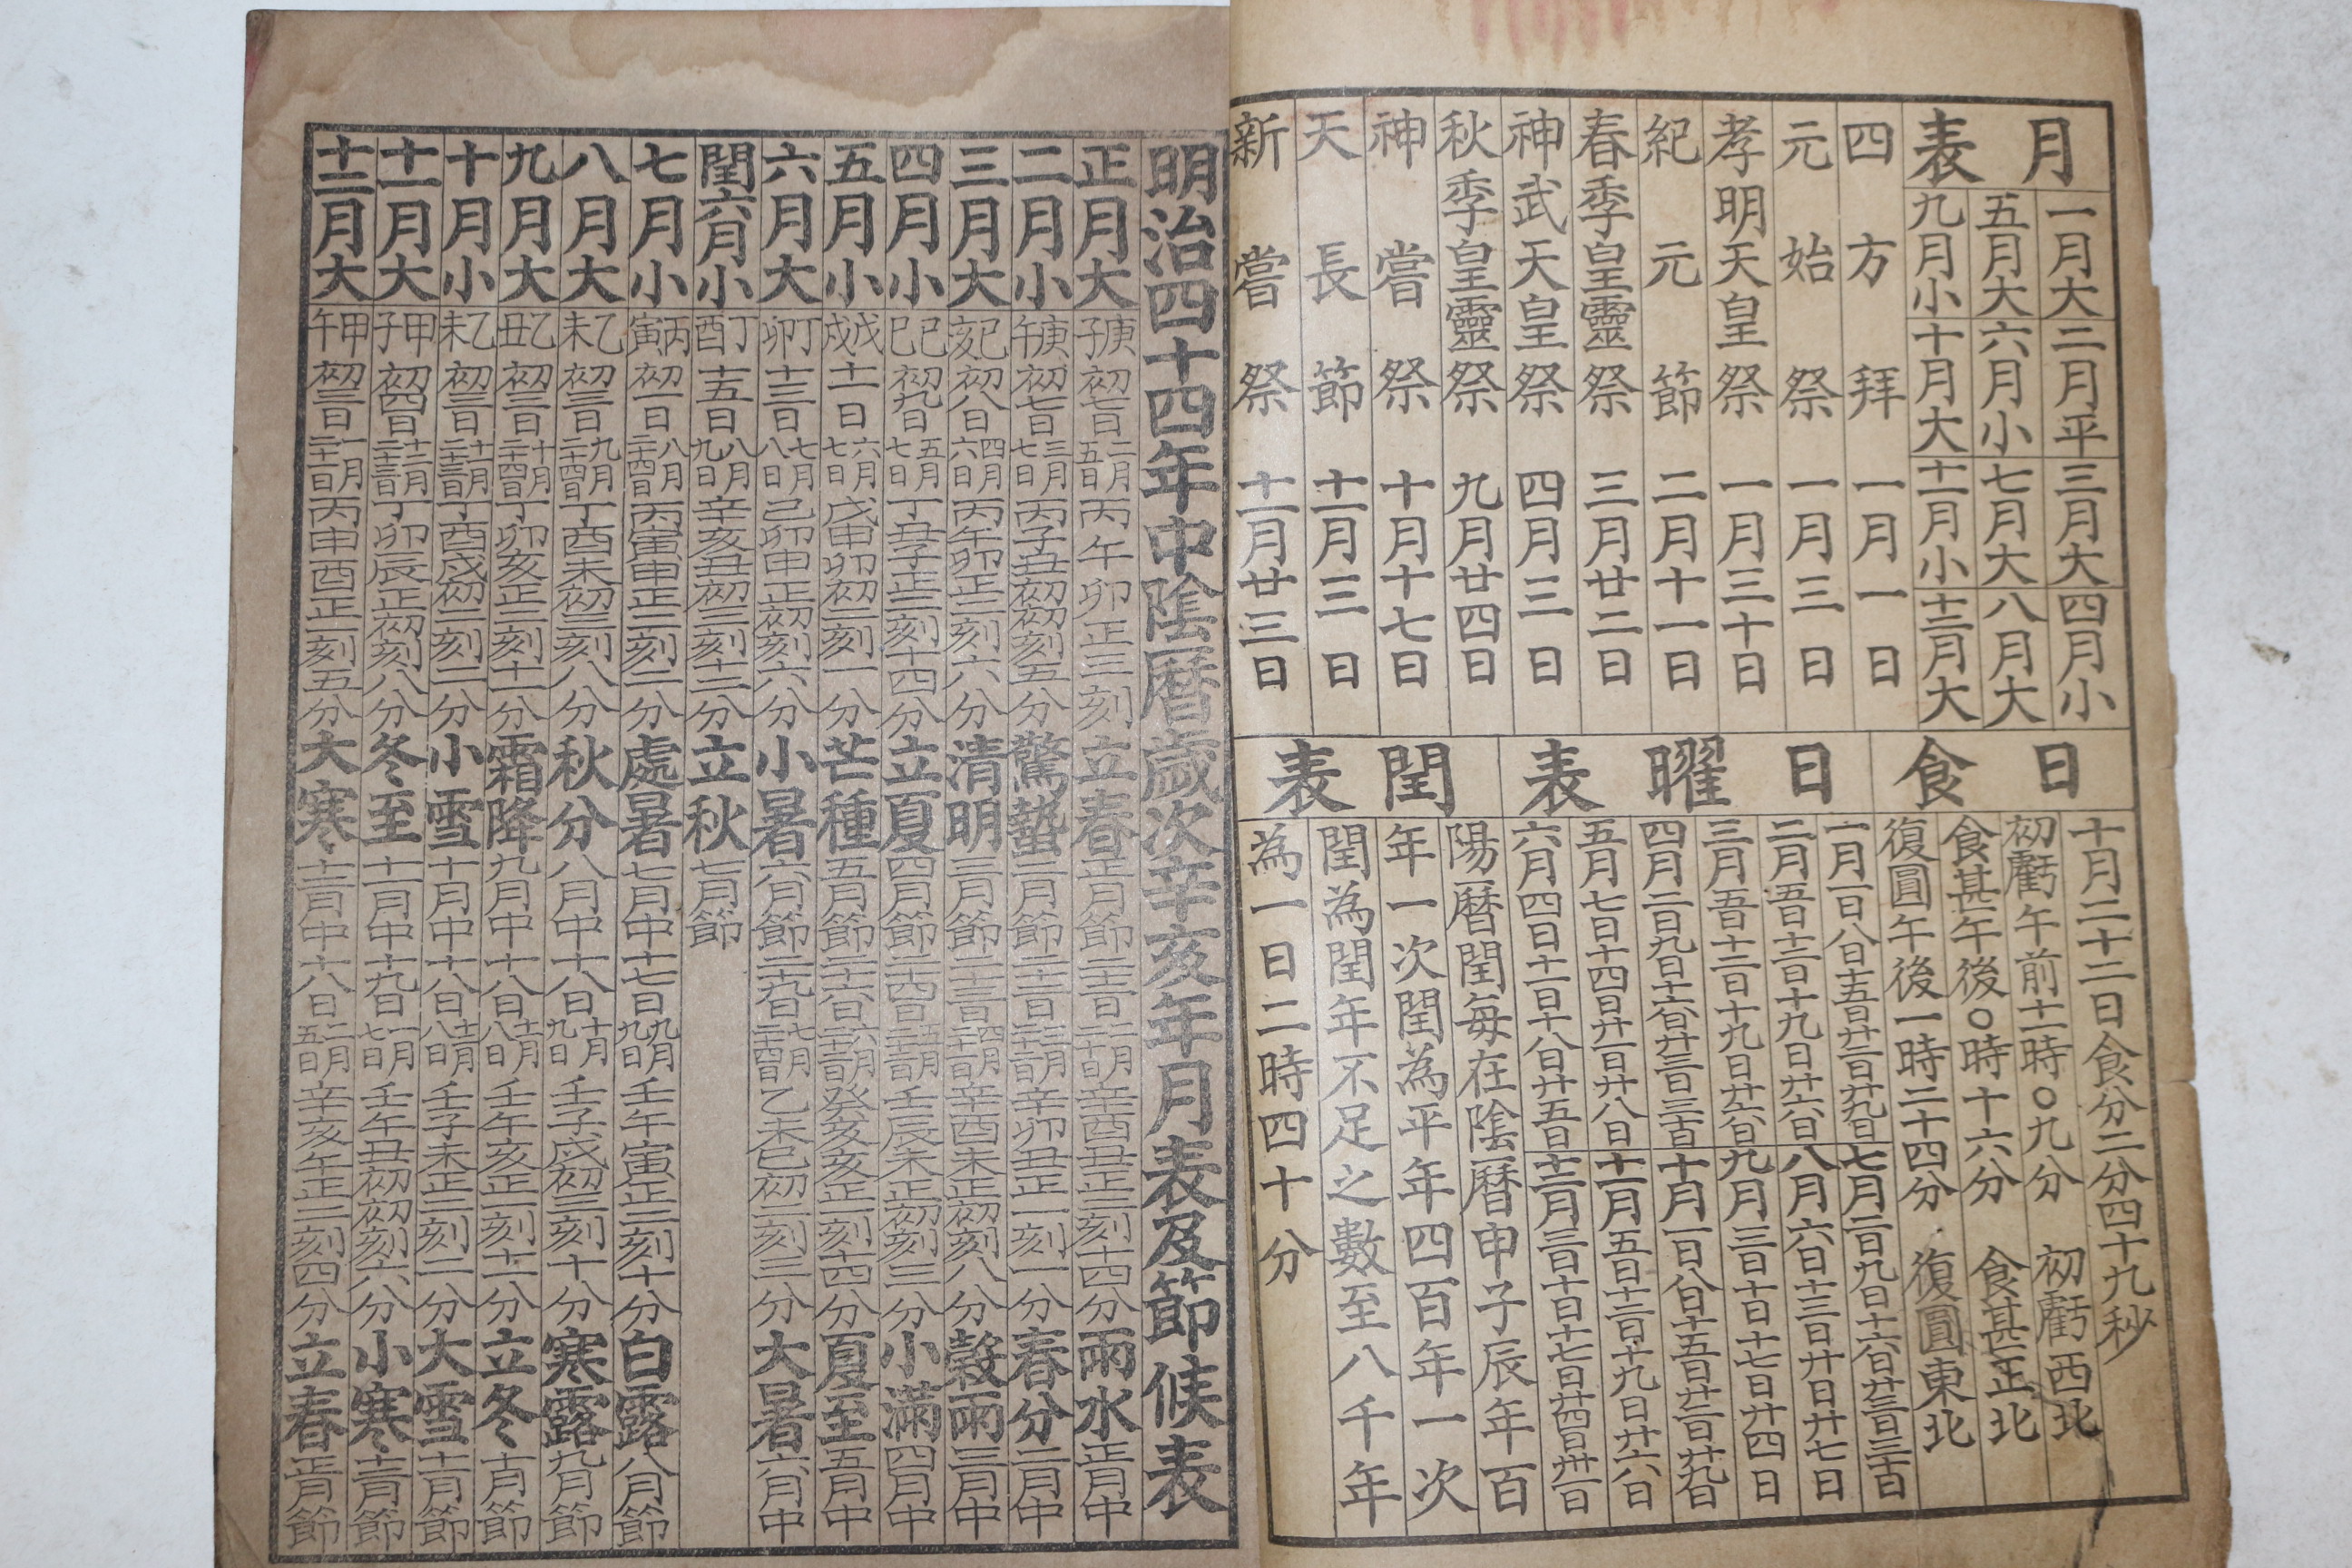 月表
一月大二月平三月大四月小
五月大六月小七月大八月大
九月小十月大十一月小十二月大
四方拜 一月一日
元始祭 一月三日
孝明天皇祭 一月三十日
紀元節 二月十一日
春季皇靈祭 三月廿二日
神武天皇祭 四月三日
秋季皇靈祭 九月廿四日
神嘗祭 十月十七日
天長節 十一月三日
新嘗祭 十一月廿三日
日食
十月二十二日食分二分四十九秒
初虧午前十一時〇九分 初虧西北
食甚午後〇時十六分 食甚正北
復圓午後一時二十四分 復圓東北
日曜表
一月一日八日十五日廿二日廿九日 七月二日九日十六日廿三日三十日
二月五日十二日十九日廿六日 八月六日十三日廿日廿七日
三月五日十二日十九日廿六日 九月三日十日十七日廿四日
四月二日九日十六日廿三日三十日 十月一日八日十五日廿二日廿九日
五月七日十四日廿一日廿八日 十一月五日十二日十九日廿六日
六月四日十一日十八日廿五日 十二月三日十日十七日廿四日卅一日
閏表
陽曆閏每在陰曆申子辰年百
年一次閏為平年四百年一次
閏為閏年不足之數至八千年
為一日二時四十分
明治四十四年中陰曆歲次辛亥年月表及節候表
正月大 庚子 初七日 二月五日 丙午卯正三刻 立春 正月節 二十二日 二月二十日 辛酉丑正三刻十四分 雨水 正月中
二月小 庚午 初七日 三月七日 丙子丑初初刻五分 驚蟄 二月節 二十二日 三月二十二日 辛卯丑正一刻一分 春分 二月中
三月大 己亥 初八日 四月六日 丙午卯正二刻六分 清明 三月節 二十三日 四月二十一日 辛酉未正初刻八分 穀雨 三月中
四月小 己巳 初九日 五月七日 丁丑子正二刻十四分 立夏 四月節 二十四日 五月二十二日 壬辰未正初刻三分 小滿 四月中
五月小 戊戌 十一日 六月七日 戊申卯初二刻一分 芒種 五月節 二十六日 六月二十二日 癸亥亥正一刻十四分 夏至 五月中
六月大 丁卯 十三日 七月八日 己卯申正初刻六分 小暑 六月節 二十九日 七月二十四日 乙未巳初二刻三分 大暑 六月中
閏六月小 丁酉 十五日 八月九日 辛亥丑初三刻十二分 立秋 七月節
七月小 丙寅 初一日 八月二十四日 丙寅申正二刻二分 處暑 七月中 十七日 九月九日 壬午寅正二刻十分 白露 八月節
八月大 乙未 初三日 九月二十四日 丁酉未初三刻八分 秋分 八月中 十八日 十月九日 壬子戌初三刻十分 寒露 九月節
九月大 乙丑 初三日 十月二十四日 丁卯亥正二刻十一分 霜降 九月中 十八日 十一月八日 壬午亥正二刻十一分 立冬 十月節
十月小 乙未 初三日 十一月二十三日 丁酉戌初二刻二分 小雪 十月中 十八日 十二月八日 壬子未正三刻二分 大雪 十一月節
十一月大 甲子 初四日 十二月二十三日 丁卯辰正初刻八分 冬至 十一月中 十九日 一月七日 壬午丑初初刻六分 小寒 十二月節
十二月大 甲午 初三日 一月二十一日 丙申酉正二刻五分 大寒 十二月中 十八日 二月五日 辛亥午正二刻四分 立春 正月節